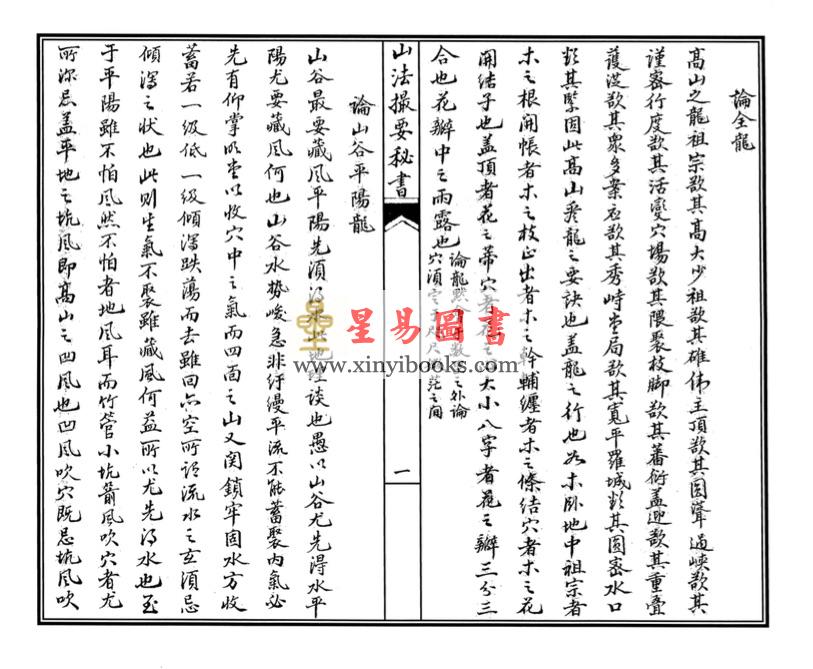 論全龍
高山之龍祖宗欲其高大少祖欲其雄偉主頂欲其圓聳過峽欲其
謹密行度欲其活變穴場欲其隈聚枝脚欲其蕃衍蓋迎欲其重疊
護從欲其眾多案石欲其秀峙堂局欲其寬平羅城欲其圓密水口
欲其緊固此高山尋龍之要訣也蓋龍之行也如木卧地中祖宗者
木之根開帳者木之枝正出者木之幹輔纏者木之條結穴者木之花
開結子也蓋頂者花之蒂穴者花之大小八字者花之瓣三分三
合也花瓣中之雨露也論龍
數之外論
穴須定于尺之間
山法撮要秘書
一
論山谷平陽龍
山谷最要藏風平陽先須得水此地理談也愚以山谷尤先得水平
陽尤要藏風何也山谷水勢峻急非紆縵平流不能蓄聚內氣必
先有仰掌明堂以收穴中之氣而四面之山又関鎖牢固水方收
蓄若一級低一級傾瀉跌蕩而去雖回亦空所謂流水之玄須忌
傾瀉之狀也此則生氣不聚雖藏風何益所以尤先得水也至
于平陽雖不怕風然不怕者地風耳而竹管小坑箭風吹穴者尤
所深忌蓋平地之坑風即高山之凹風也凹風吹穴既忌坑風吹
星易圖書
www.xinyibooks.com